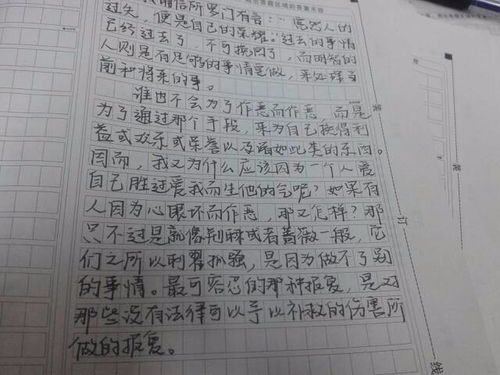 我相信所罗门有言：“宽恕人的
过失，便是自己的荣耀。过去的事情
已经过去了，不可挽回了，而明智的
人则是有足够的事情要做，来处理当
前和将来的事。
谁也不会为了作恶而作恶，而是
为了通过那个手段，来为自己换得利
益或欢乐或荣誉以及诸如此类的东西。
因而，我又为什么应该因为一个人爱
自己胜过爱我而生他的气呢？如果有
人因为心眼坏而作恶，那又怎样？那
只不过是就像荆棘或者蔷薇一般，它
们之所以刺
是因为做不了别
的事情。最可容忍的那种报复，是对
那些没有法律可以予以补救的伤害所
做的报复。
订
线